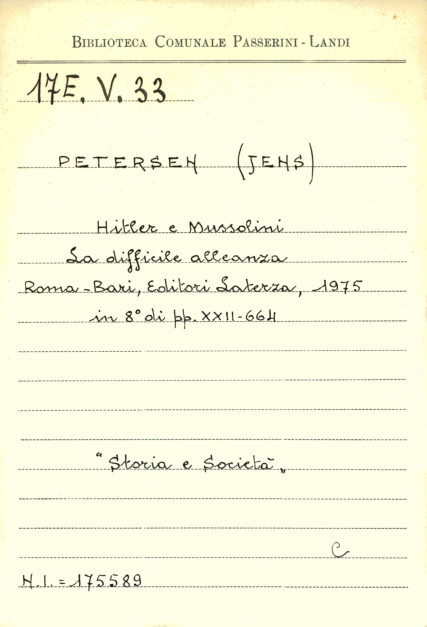 BIBLIOTECA COMUNALE PASSERINI - LANDI
17E. V. 33
PETERSEN (JENS)
Hitler e Mussolini
La difficile alleanza
Roma-Bari, Editori Laterza, 1975
in 8° di pp. XXII-664
"Storia e Società"
C
N.I. = 175589